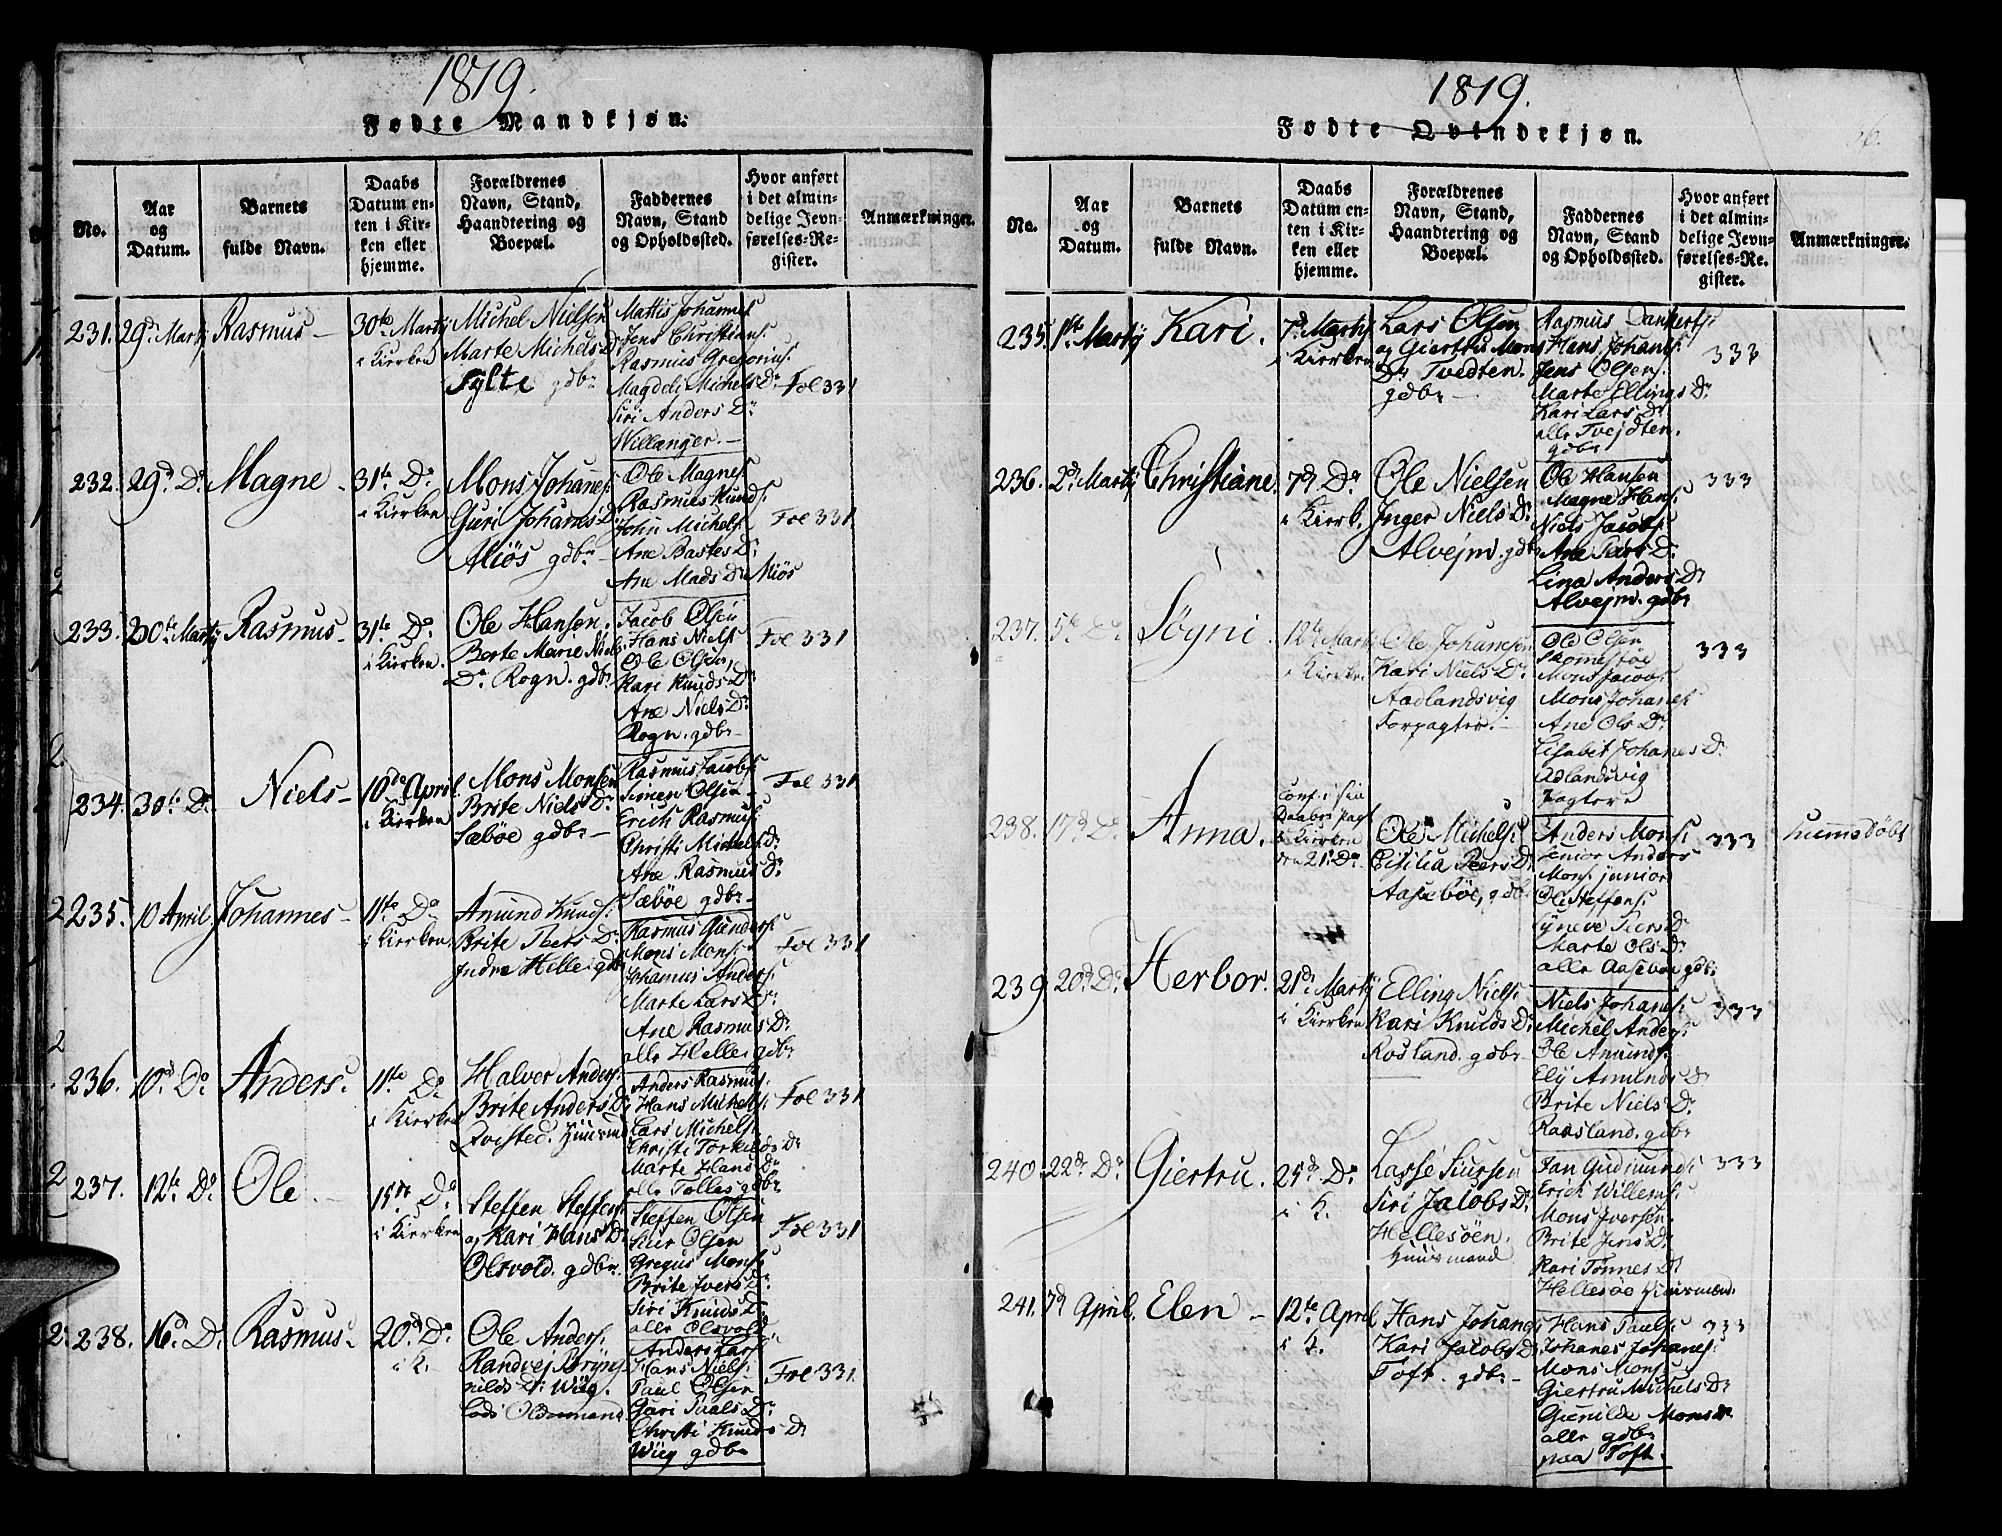 1819.
Fødte Mandkjøn:
No.
Aar
og
Datum.
Barnets
fulde Navn.
Daabs
Datum en-
ten i Kir-
ken eller
hjemme.
Forældrenes
Navn, Stand,
Haandtering og
Boepæl.
Faddernes
Navn, Stand
og Opholdssted.
Hvor anført
i det almin-
delige Jevn-
førelses-Re-
gister.
Anmærkninger.
231. 29d Martij Rasmus
30te Martij
i Kirken
Michel Nielsen
Marte Michels D:
Sylte gdbr
Mattis Johannes
Jens Christians:
Rasmus Gregorius:
Magdeli Michels Dr
Siri Anders Dr
Willanger.
Fol 331
232. 29d Do Magne
31te Do
i Kirken
Mons Johanes:
Guri Johanes D:
Miøs gdbr
Ole Magnes:
Rasmus Knuds:
John Michels:
Ane Bastes Dr
Ane Mads Dr Miøs
Fol 331
233. 30te Martij Rasmus
31te Do
i Kirken.
Ole Hansøn.
Berte Marie Niels
Dr Rogn. gdbr
Jacob Olsen
Hans Niels:
Ole Olsen,
Kari Knuds Dr
Ane Niels Dr
Rogn. gdbr
Fol 331
234. 30te Do Niels
10de April.
i Kirken
Mons Monsen
Brite Niels Dr
Sæbøe gdbr
Rasmus Jacobs:
Simen Olsen
Erich Rasmus:
Christi Michels Dr
Ane Rasmus Dr
Sæbøe gdbr
Fol 331
235. 10 April Johannes
11te Do
i Kirken
Amund Knuds:
Brite Peers Dr
Indre Helle gdbr
Rasmus Gunders:
Mons Mons:
Johannes Anders:
Marte Lars Dr
Ane Rasmus Dr
alle Helle gdbr
Fol 331
236. 10d Do Anders
11te Do
i Kirken
Halver Anders:
Brite Anders D:
Qvisted. Huusmd
Anders Rasmus:
Hans Michels:
Lars Michels:
Christi Torkilds Dr
Marte Hans Dr
alle Tolles gdbr
Fol 331
237. 12te Do Ole
15de Do
i Kirken
Steffen Steffens:
og Kari Hans Dr
Olsvold. gdbr
Steffen Olsen
Siur Olsen
Gregus Mons:
Brite Ivers Dr
Siri Knuds Dr
alle Olsvold
Fol 331
238. 16d Do Rasmus
20d Do
i K.
Ole Anders:
Randvei Bryng-
nilds Dr Wiig.
Lods Oldermand
Anders Lars:
Hans Niels:
Paul Olsen
Gari Paals Dr
Christi Knuds Dr
Wiig gdbr
Fol 331.
1819.
Fødte Qvindekjøn.
No.
Aar
og
Datum.
Barnets
fulde Navn.
Daabs
Datum en-
ten i Kir-
ken eller
hjemme.
Forældrenes
Navn, Stand,
Haandtering og
Boepæl.
Faddernes
Navn, Stand
og Opholdssted.
Hvor anført
i det almin-
delige Jevn-
førelses-Re-
gister.
Anmærkninger.
235. 1ste Martij Kari.
7d Martij
i Kirken
Lars Olsen
og Giertru Mons
Dr Tvedten.
gdbr
Rasmus Dankerts:
Hans Johans:
Jens Olsen:
Marte Ellings Dr
Kari Lars Dr
alle Tvejdten.
gdbr
333
236. 2d Martij Christiane.
7d Do
i Kirk.
Ole Nielsen
Inger Niels Dr
Alvejm. gdbr
Ole Hansen
Magne Hans:
Niels Jacobs:
Ane Siurs Dr
Lina Anders Dr
Alvejm. gdbr
333
237. 5te Do Søgni.
12te Martij
i Kirken
Ole Johansen
Kari Niels Dr
Aadlandsvig
Forpagter.
Ole Olsen
Mons Jacobs:
Mons Johanes:
Ane Ols Dr
Lisabet Johanes Dr
Adlandsvig
333
238. 17d Do Anna.
Conf. i sin
Daabs pag
i Kirken
den 21de Do
Ole Michels:
Cisilia Peers Dr
Aasebøe, gdbr
Anders Mons:
senior Anders
Mons: junior
Ole Steffens:
Syneve Peers Dr
Marte Ols Dr
alle Aasebøe gdbr
333
hiemedøbt
239. 20d Do Herbor.
21de Martij
i Kirken
Elling Niels:
Kari Knuds Dr
Rosland. gdbr
Niels Johanes:
Michel Anders:
Ole Amunds:
Elij Amunds Dr
Brite Niels Dr
Raasland. gdbr
333
240. 22de Do Giertru.
25de Do
i K.
Lasse Siursen
Siri Jacobs Dr
Hellesøen.
Huusmand
Jan Gudmunds:
Erich Willems:
Mons Iversen.
Brite Jens Dr
Kari Tønnes Dr
Hellesøe Huusmænd
333
241. 7d April. Elen
12te April
i K.
Hans Johanes:
Kari Jacobs D:
Toft. gdbr
Hans Pauls:
Johanes Johanes:
Mons Mons:
Giertru Michels Dr
Gunilde Mons Dr
alle gdbr
paa Toft.
333